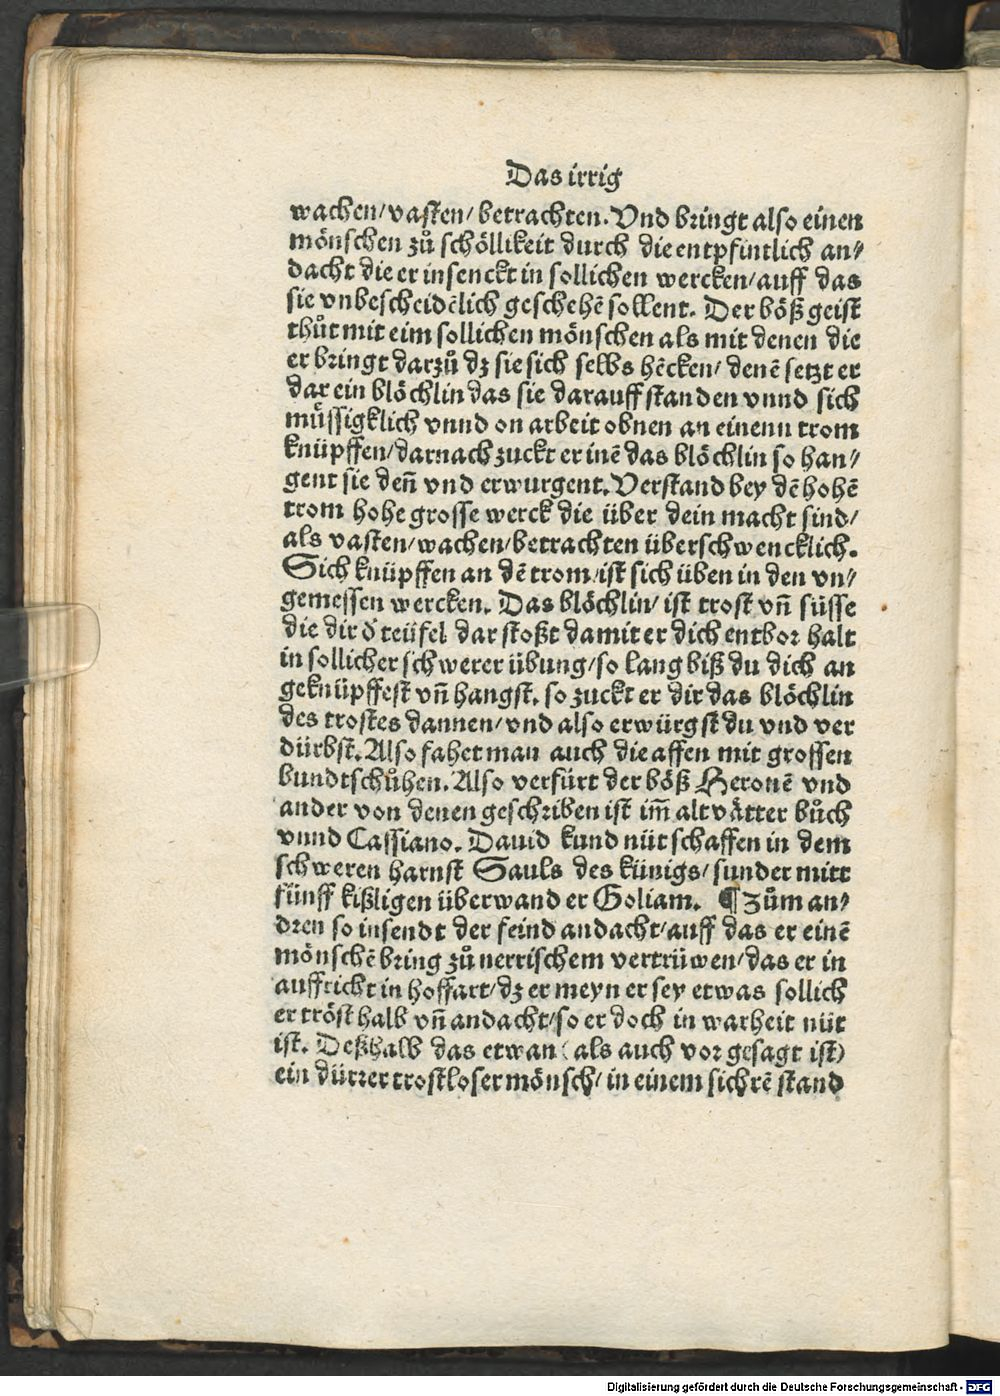 Das irrig
wachen/vasten/betrachten. Vnd bringt also einen
mönschen zů schöllikeit durch die entpfintlich an⸗
dacht die er insenckt in sollichen wercken/auff das
sie vnbescheidēlich geschehē sollent. Der böß geist
thůt mit eim sollichen mönschen als mit denen die
er bringt darzů dz sie sich selbs hēcken/ denē setzt er
dar ein blöchlin das sie darauff standen vnnd sich
müssigklich vnnd on arbeit obnen an einenn trom
knüpffen/darnach zuckt er inē das blöchlin so han⸗
gent sie deñ vnd erwurgent. Verstand bey dē hohē
trom hohe grosse werck die über dein macht sind/
als vasten/wachen/betrachten überschwencklich.
Sich knüpffen an dē trom/ist sich üben in den vn⸗
gemessen wercken. Das blöchlin/ ist trost vñ süsse
die dir d̛ teüfel dar stoßt damit er dich entbor halt
in sollicher schwerer übung/so lang biß du dich an
geknüpffest vñ hangst. so zuckt er dir das blöchlin
des trostes dannen/vnd also erwürgst du vnd ver
dürbst. Also fahet man auch die affen mit grossen
bundtschůhen. Also verfürt der böß Heronē vnd
ander von denen geschriben ist im̄ alt vätter bůch
vnnd Cassiano. Dauid kund nüt schaffen in dem
schweren harnst Sauls des künigs/sunder mitt
fünff kißligen überwand er Goliam. ¶ Zům an⸗
dren so insendt der feind andacht/auff das er einē
mönschē bring zů nerrischem vertrüwen/das er in
auffricht in hoffart/dz er meyn er sey etwas sollich
er tröst halb vñ andacht/so er doch in warheit nüt
ist. Deßhalb das etwan (als auch vor gesagt ist)
ein dürrer trostloser mönsch/in einem sichrē stand
Digitalisierung gefördert durch die Deutsche Forschungsgemeinschaft - DFG